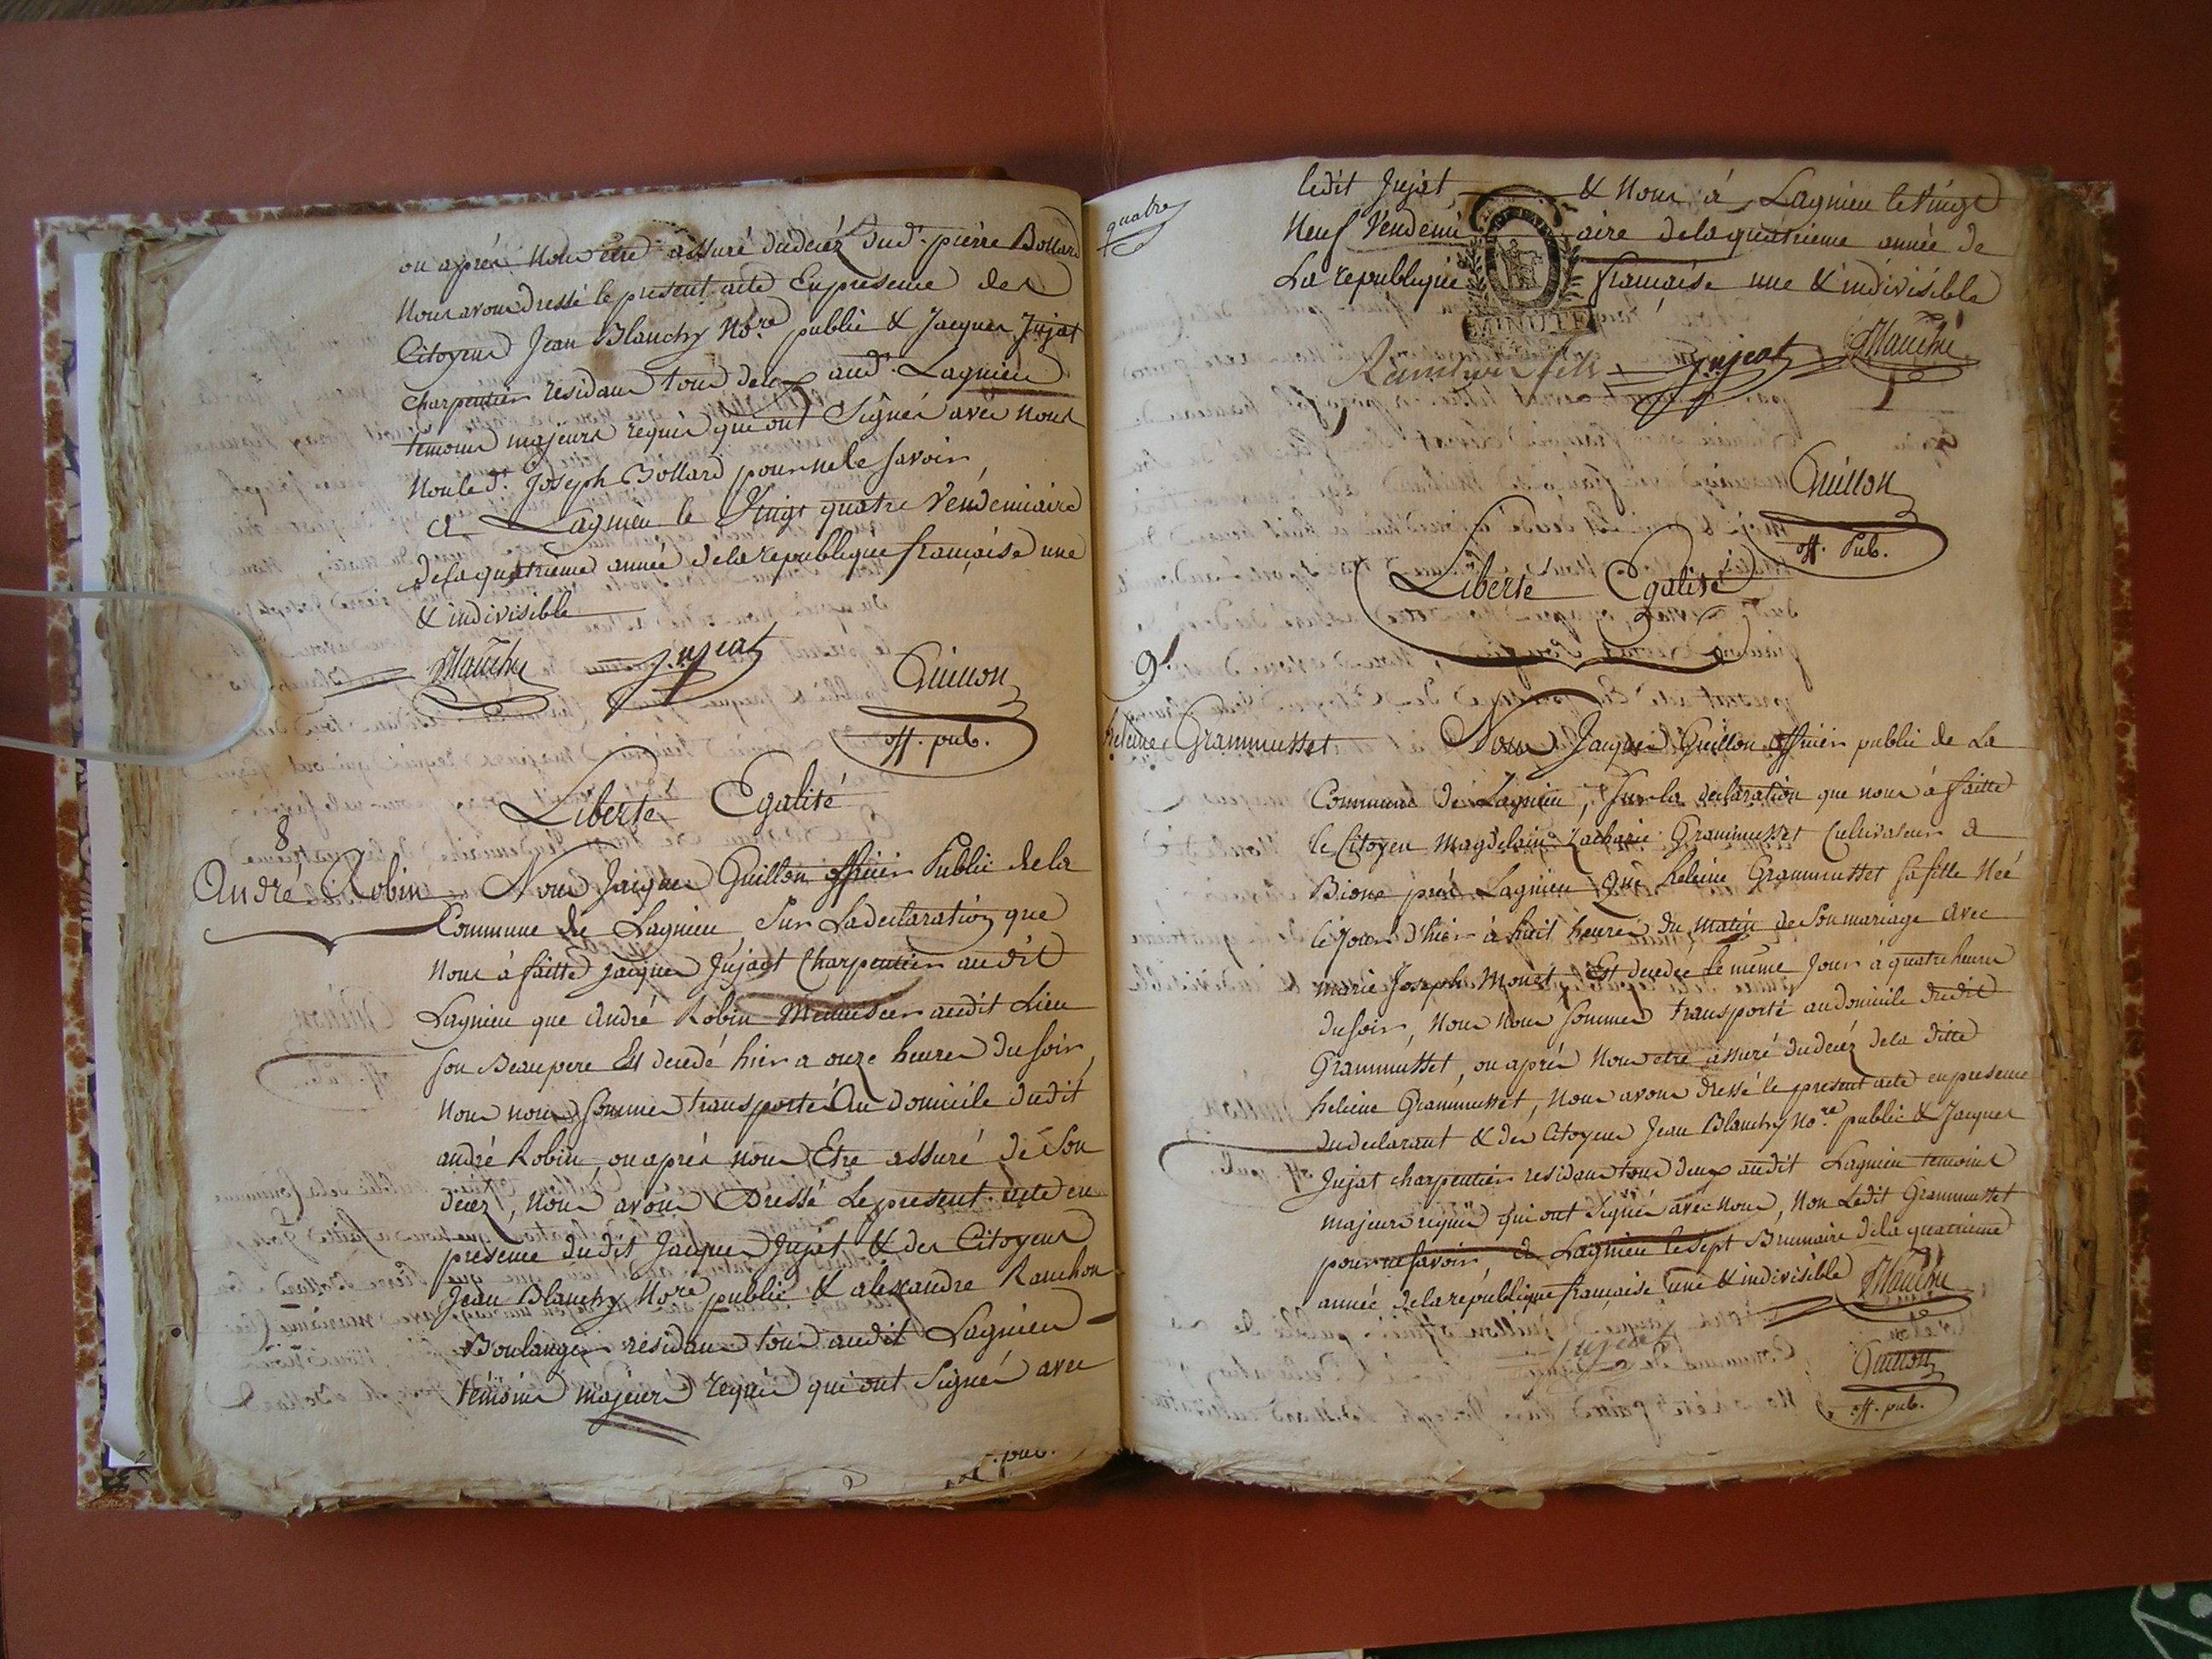 ou aprés nous etre assuré dudecéz dud. pierre Bollard
Nous avons dressé le present acte En presence des
Citoyens Jean Blanchy No.re public & Jacques Jujat
charpentier residans tous deux aud. Lagnieu
temoins majeurs requis qui ont Signés avec nous
Non led. Joseph Bollard pour ne le savoir
a Lagnieu le Vingt quatre Vendemiaire
dela quatrieme année dela republique francaise une
& indivisible
Blanchy Jujat Guillon
off. pub.
Liberte Egalité
8
André Robin Nous Jacques Guillon officier Public de la
Commune de Lagnieu Sur La declaration que
Nous à faitte jacques Jujact Charpentier au dit
Lagnieu que andré Robin Menusier audit Lieu
son Beaupere Est decedé hier a onze heures du soir,
nous nous sommes transporté Au domicile dudit
andré Robin, ou aprés nous Etre assuré de Son
decez, nous avons Dressé Le present acte en
presence dudit Jacques Jujat & des Citoyens
Jean Blanchy No.re public & alexandre Ranchon
Boulanger residans tous audit Lagnieu
temoins majeurs requis qui ont Signés avec
pub.
quatre
ledit Jujat, & Nous à Lagnieu le Vingt
Neuf Vendemiaire dela quatrieme année de
La republique francaise une & indivisible
MINUTE
Jujat Blanchy
Guillon
off. Pub.
Liberte Egalité
9.
heleine Grammusset Nous Jacques Guillon officier public de La
Commune de Lagnieu, sur la declaration que nous à faitte
le Citoyen Magdelain Zacharie Grammusset Cultivateur a
Bione prés Lagnieu que heleine Grammusset sa fille Née
le jour d'hier à huit heures du matin de Son mariage avec
marie Joseph Monet Est decedée le même Jour à quatre heures
du soir, Nous Nous sommes transporté au domicile dudit
Grammusset, ou aprés Nous etre assuré du decéz dela ditte
heleine Grammusset, Nous avons dressé le present acte en presence
du declarant & des Citoyens Jean Blanchy No.re public & Jacques
Jujat charpentier residans tous deux audit Lagnieu temoins
majeurs requis qui ont Signés avec nous, Non Ledit Grammusset
pour ne savoir, à Lagnieu le sept Brumaire dela quatrieme
année dela république francaise une & indivisible Blanchy
Jujat
Guillon
off. pub.